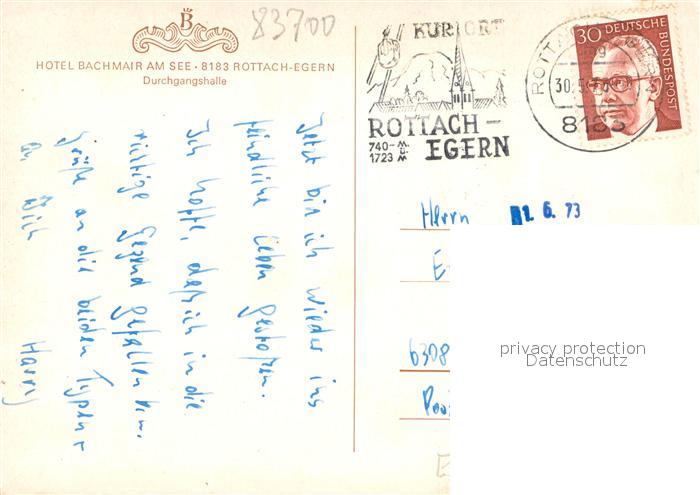 B
83700
HOTEL BACHMAIR AM SEE · 8183 ROTTACH-EGERN
Durchgangshalle
KURORT
ROTTACH-
EGERN
740-
1723 m ü M
30.5.73
8183
30 DEUTSCHE
BUNDESPOST
Jetzt bin ich wieder ins
feindliche Leben gestoßen.
Ich hoffe, daß ich in die
richtige Gegend gefallen bin.
Grüße an die beiden Typen +
an Dich
Harry
1. 6. 73
Herrn
E
6308
privacy protection
Datenschutz